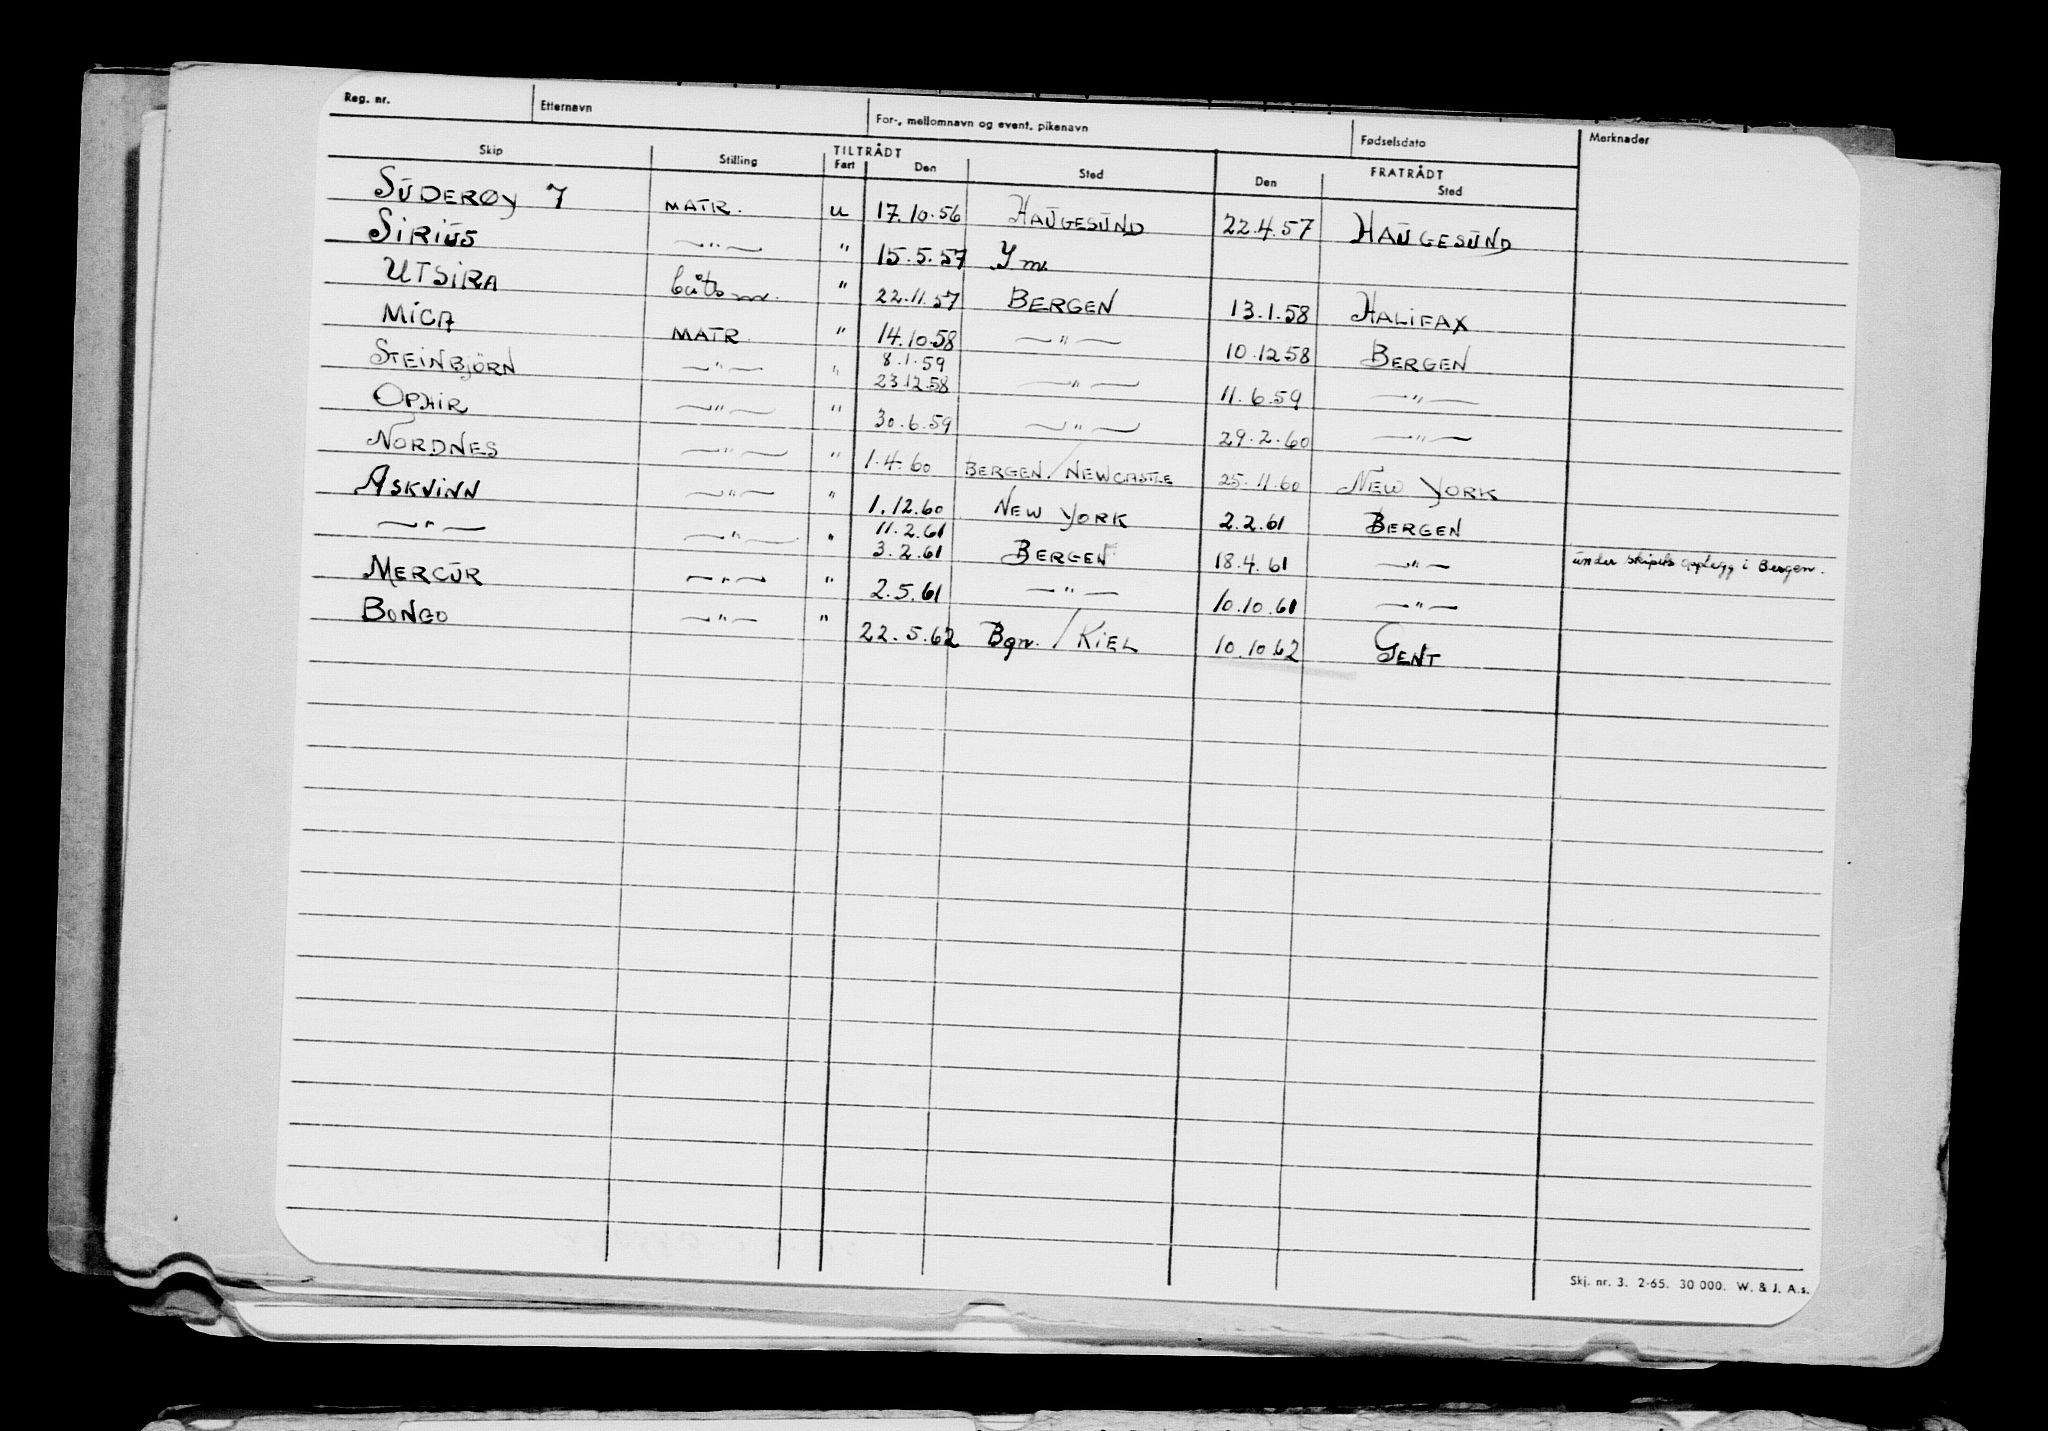 Reg. nr. Etternavn For-, mellomnavn og event. pikenavn Fødselsdato Merknader
TILTRÅDT FRATRÅDT
Skip Stilling Fart Den Sted Den Sted
SŪDERØY 7 MATR. u 17.10.56 HAŪGESŪND 22.4.57 HAŪGESŪND
SIRIŪS —"— " 15.5.57
UTSIRA båtsm. " 22.11.57 BERGEN 13.1.58 HALIFAX
MICA MATR. " 14.10.58 —"— 10.12.58 BERGEN
8.1.59
STEINBJÖRN —"— " 23.12.58 —"— 11.6.59 —"—
OPHIR —"— " 30.6.59 —"— 29.2.60 —"—
NORDNES —"— " 1.4.60 BERGEN/NEWCASTLE 25.11.60 NEW YORK
ASKVINN —"— " 1.12.60 NEW YORK 2.2.61 BERGEN
11.2.61
—"— —"— " 3.2.61 BERGEN 18.4.61 —"— ūnder skipets opplegg i Bergen.
MERCŪR —"— " 2.5.61 —"— 10.10.61 —"—
BONGO —"— " 22.5.62 Bgn./KIEL 10.10.62 GENT
Skj. nr. 3. 2-65. 30 000. W. & J. A.s.